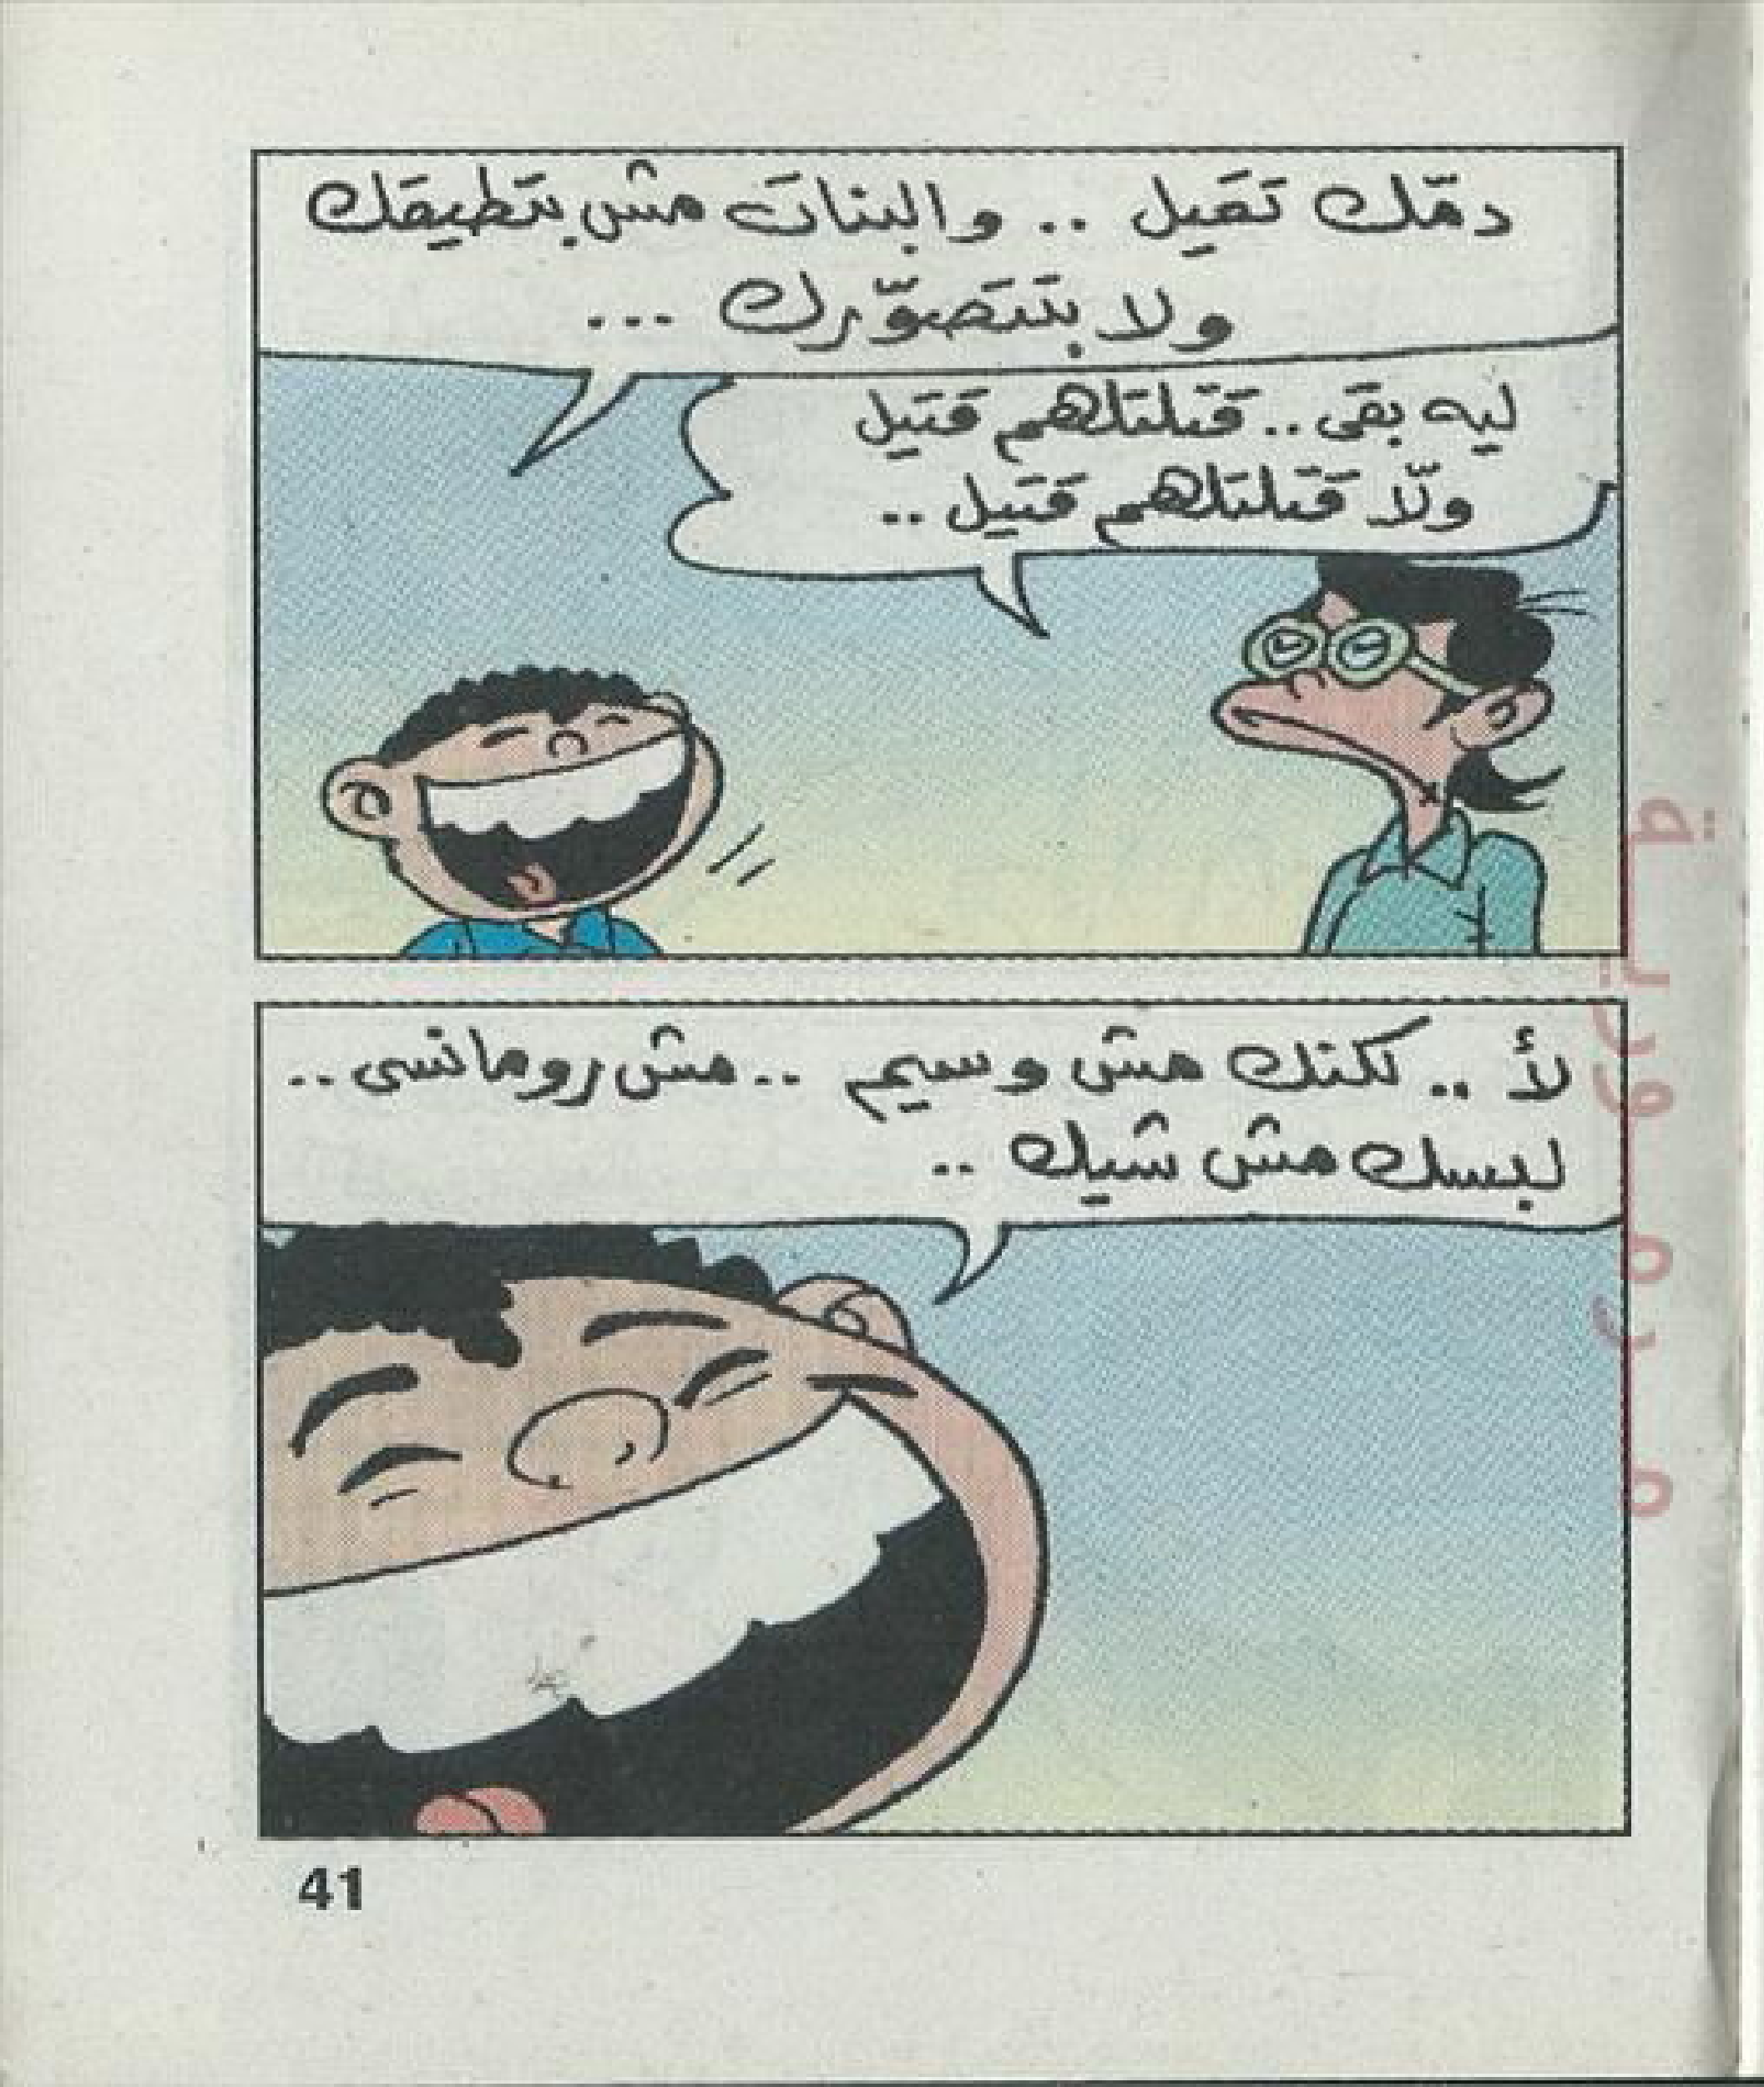 دمّك تقيل .. والبنات مش بتطيقك
ولا بتتصوّرك ...
ليه بقى .. قتلتلهم قتيل
ولّا قتلتلهم قتيل ..
لأ .. لكنك مش وسيم .. مش رومانسى ..
لبسك مش شيك ..
41